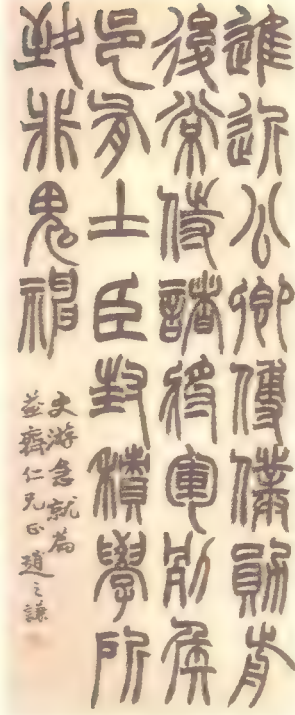 進近公卿傅僕勛前
後常侍諸將軍列侯
邑有土臣封積學所
致非鬼神
史游急就篇
益齋仁兄正趙之謙